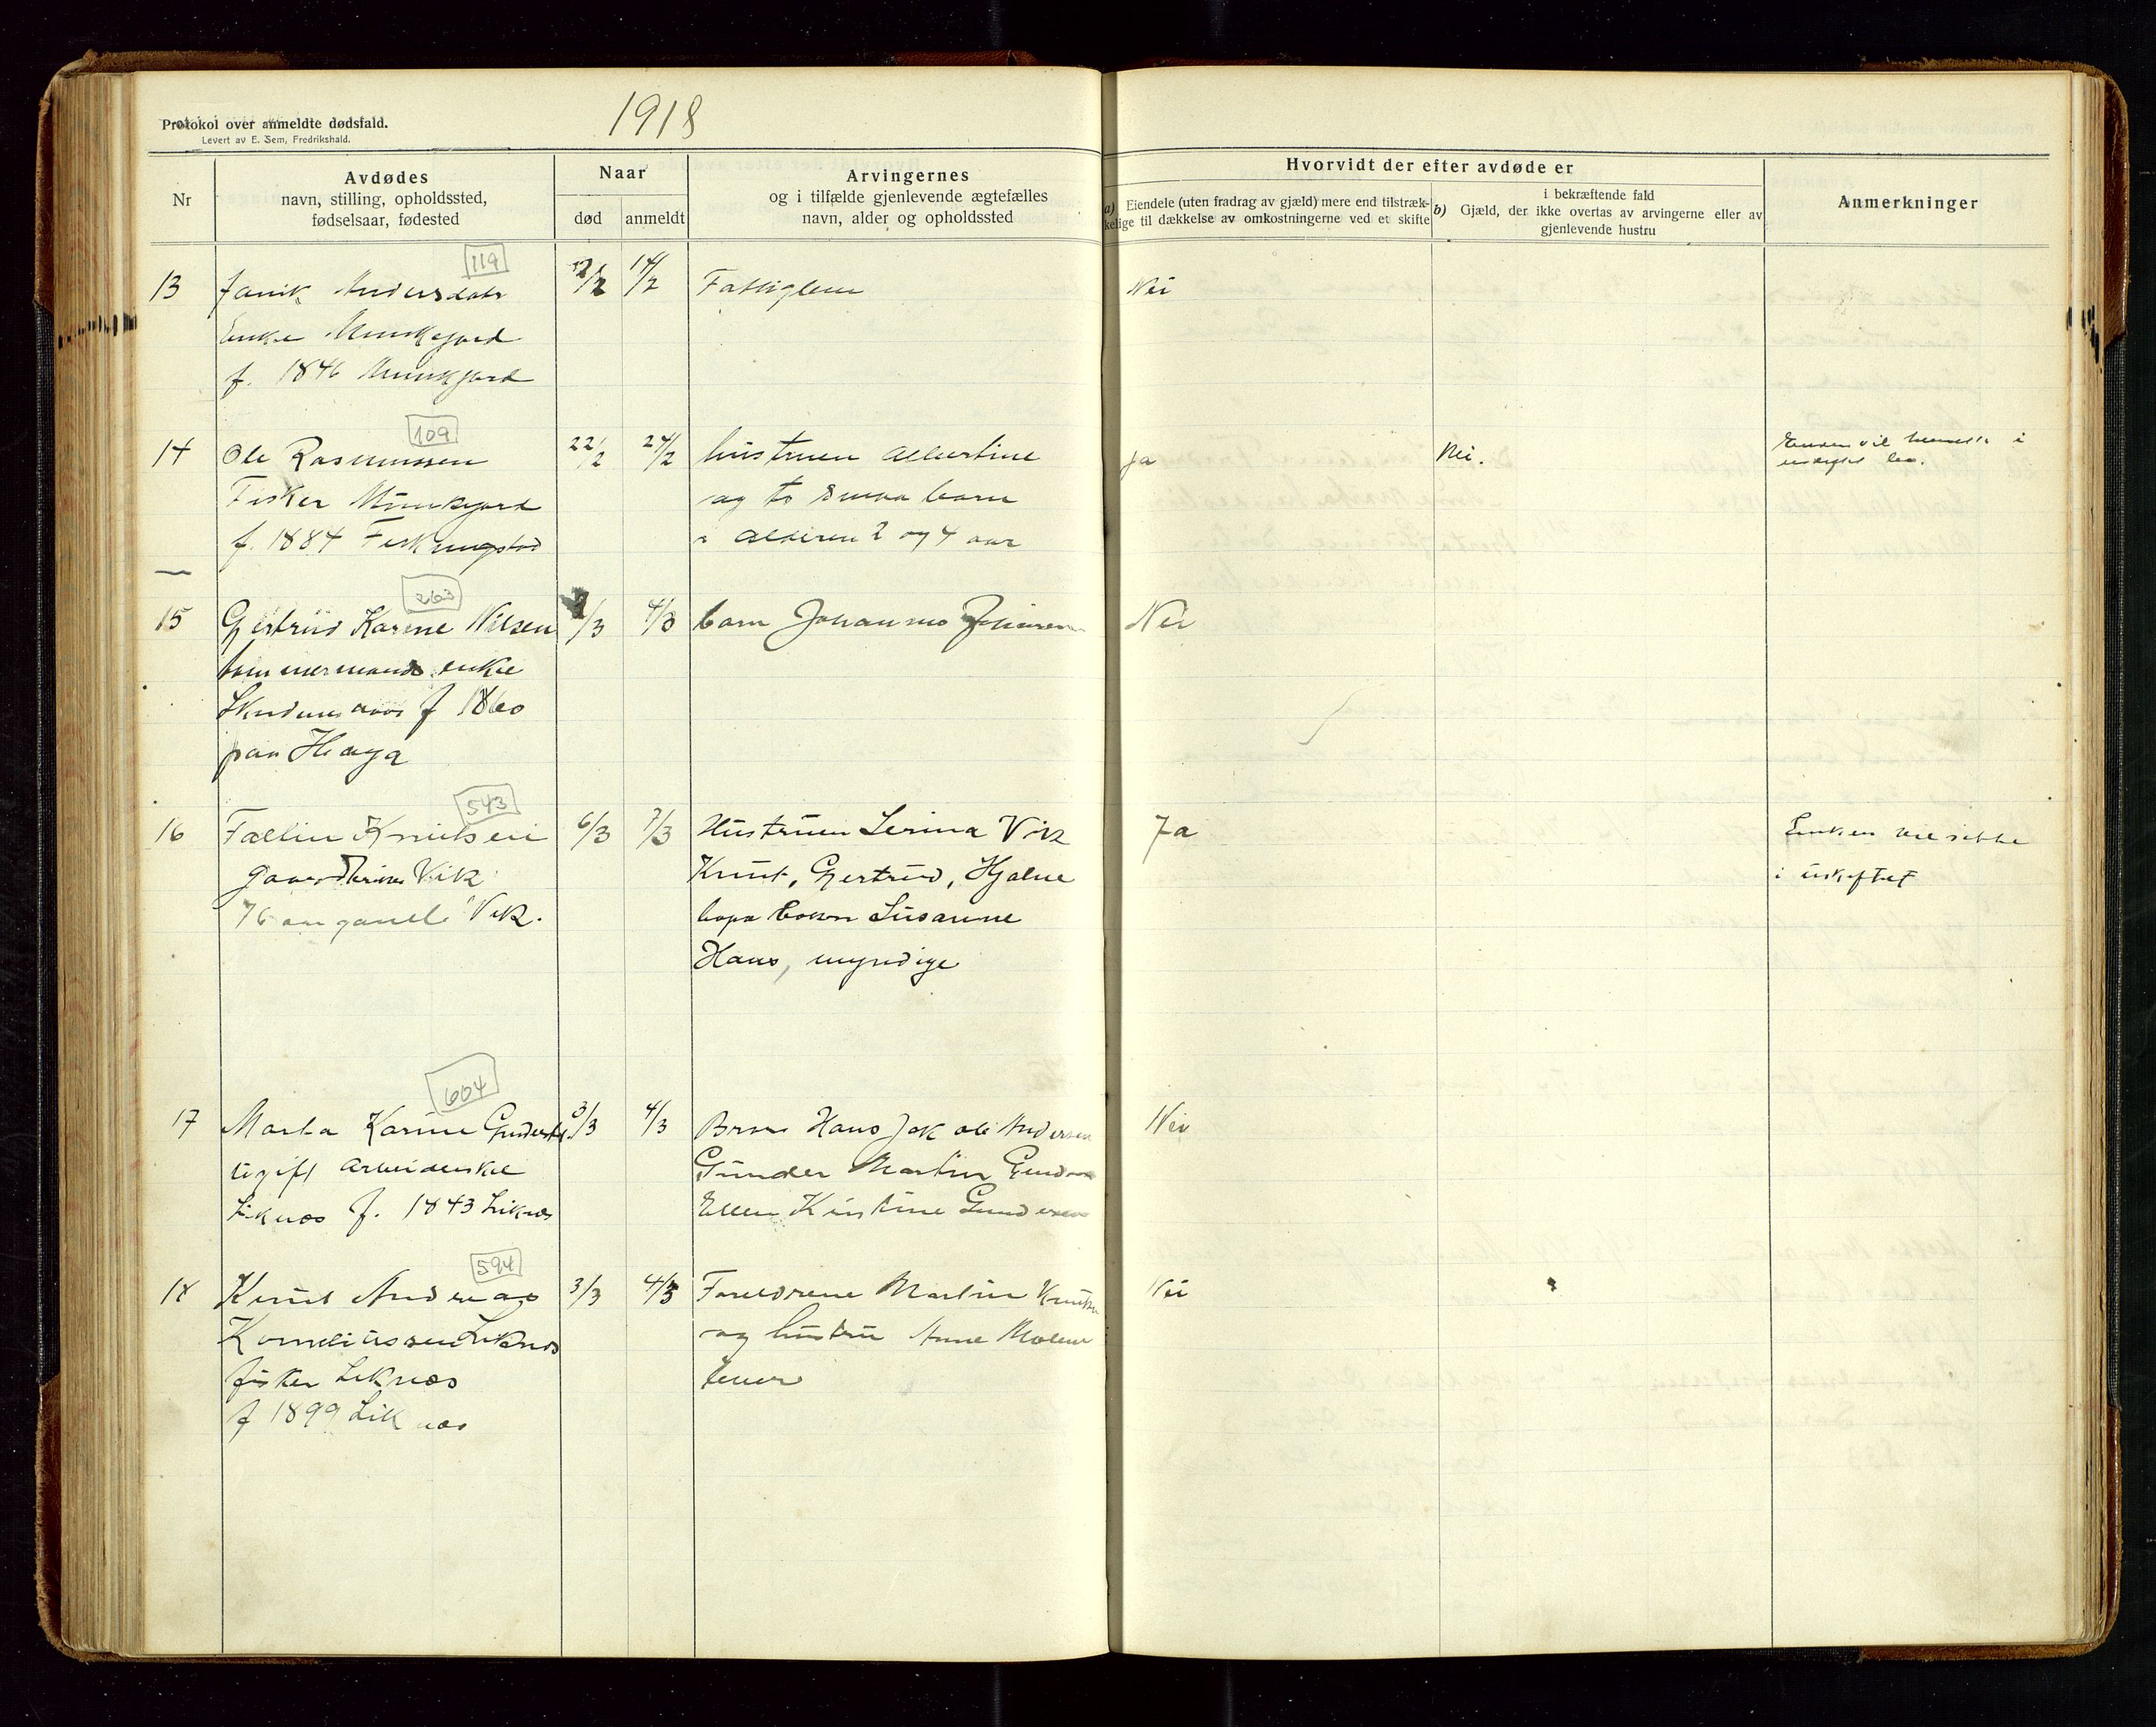 Protokol over anmeldte dødsfald.
Levert av E. Sem, Fredrikshald.
1918
Nr
Avdødes
navn, stilling, opholdssted,
fødselsaar, fødested
Naar
død
anmeldt
Arvingernes
og i tilfælde gjenlevende ægtefælles
navn, alder og opholdssted
Hvorvidt der efter avdøde er
a) Eiendele (uten fradrag av gjæld) mere end tilstræk-
kelige til dækkelse av omkostningerne ved et skifte
i bekræftende fald
b) Gjæld, der ikke overtas av arvingerne eller av
gjenlevende hustru
Anmerkninger
119
13 Janik Andersdatr 12/2 14/2 Fattiglem Nei
Enke Munkejord
f. 1846 Munkjord
109
14 Ole Rasmussen 22/2 24/2 hustruen Albertine Ja Nei. Enken vil hensitte i
Fisker Munkejord og to smaa barn uskiftet bo.
f. 1884 Ferkingstad i alderen 2 og 4 aar
263
15 Gjertrud Karine Nilsen 2/3 4/3 barn Johannes Johnsen Nei
tømmermands enke
Skudenes f 1860
paa Hauga
543
16 Fallin Knutsen 6/3 7/3 Hustruen Serina Vik Ja Enken vil sitte
gaardbruker Vik Knut, Gjertrud, i uskiftet
76 aar gammel Vik. barn Susanne
Hans, myndige
604
17 Marta Karine Gundersd. 3/3 4/3 Bror Hans Jakob Andersen Nei
ugift arbeiderske Gunder Martin
Liknes f. 1843 Liknes Ellen Kirstine Gundersen
594
18 Knut Andreas 3/3 4/3 Foreldrene Martin Knutsen Nei
Korneliussen Liknes og hustru Anne Malene
fisker Liknes
f 1899 Liknes